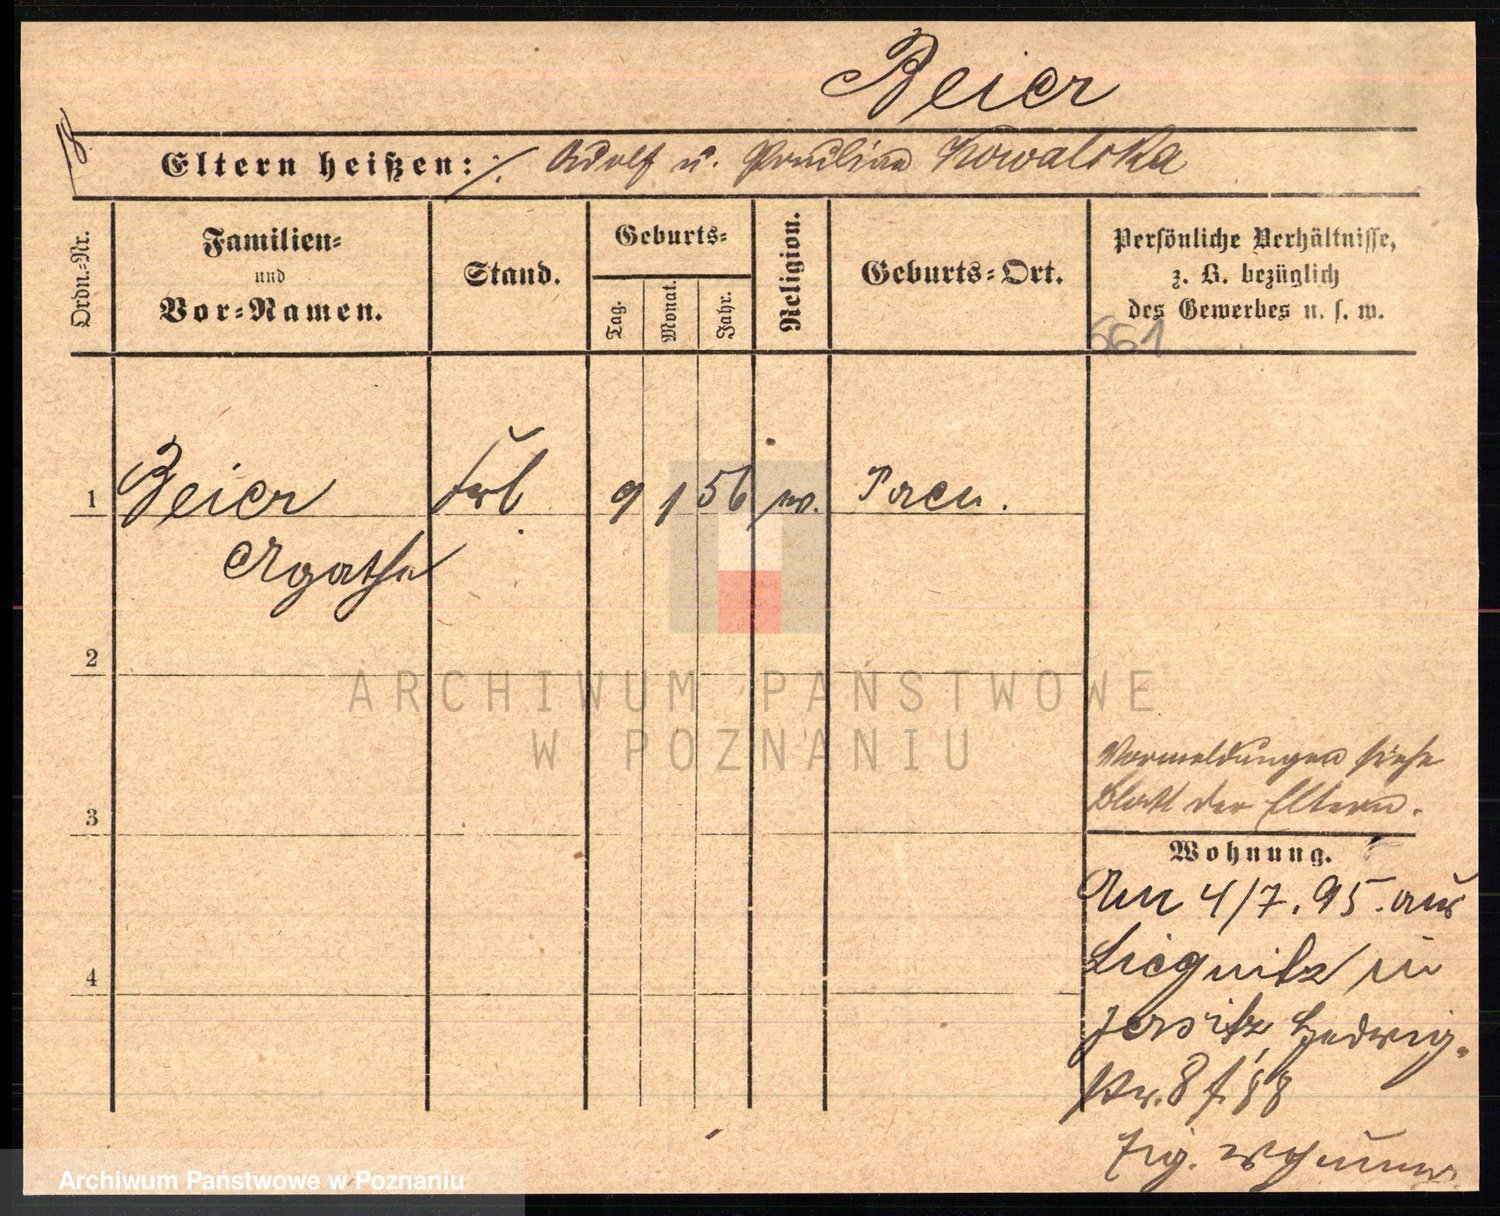 Beier
18.
Eltern heißen: ·/. Adolf u. Pauline Kowalska
Ordn.-Nr.
Familien-
und
Vor-Namen.
Stand.
Geburts-
Tag.
Monat.
Jahr.
Religion.
Geburts-Ort.
Persönliche Verhältnisse,
z. B. bezüglich
des Gewerbes u. s. w.
661
1 Beier 9 1 56 Posen.
Agathe
2
3
4
Vormeldungen siehe
Blatt der Eltern.
Wohnung.
Am 4/7. 95. aus
Liegnitz in
Jersitz, Hedwig-
str. 8
ARCHIWUM PAŃSTWOWE
W POZNANIU
Archiwum Państwowe w Poznaniu